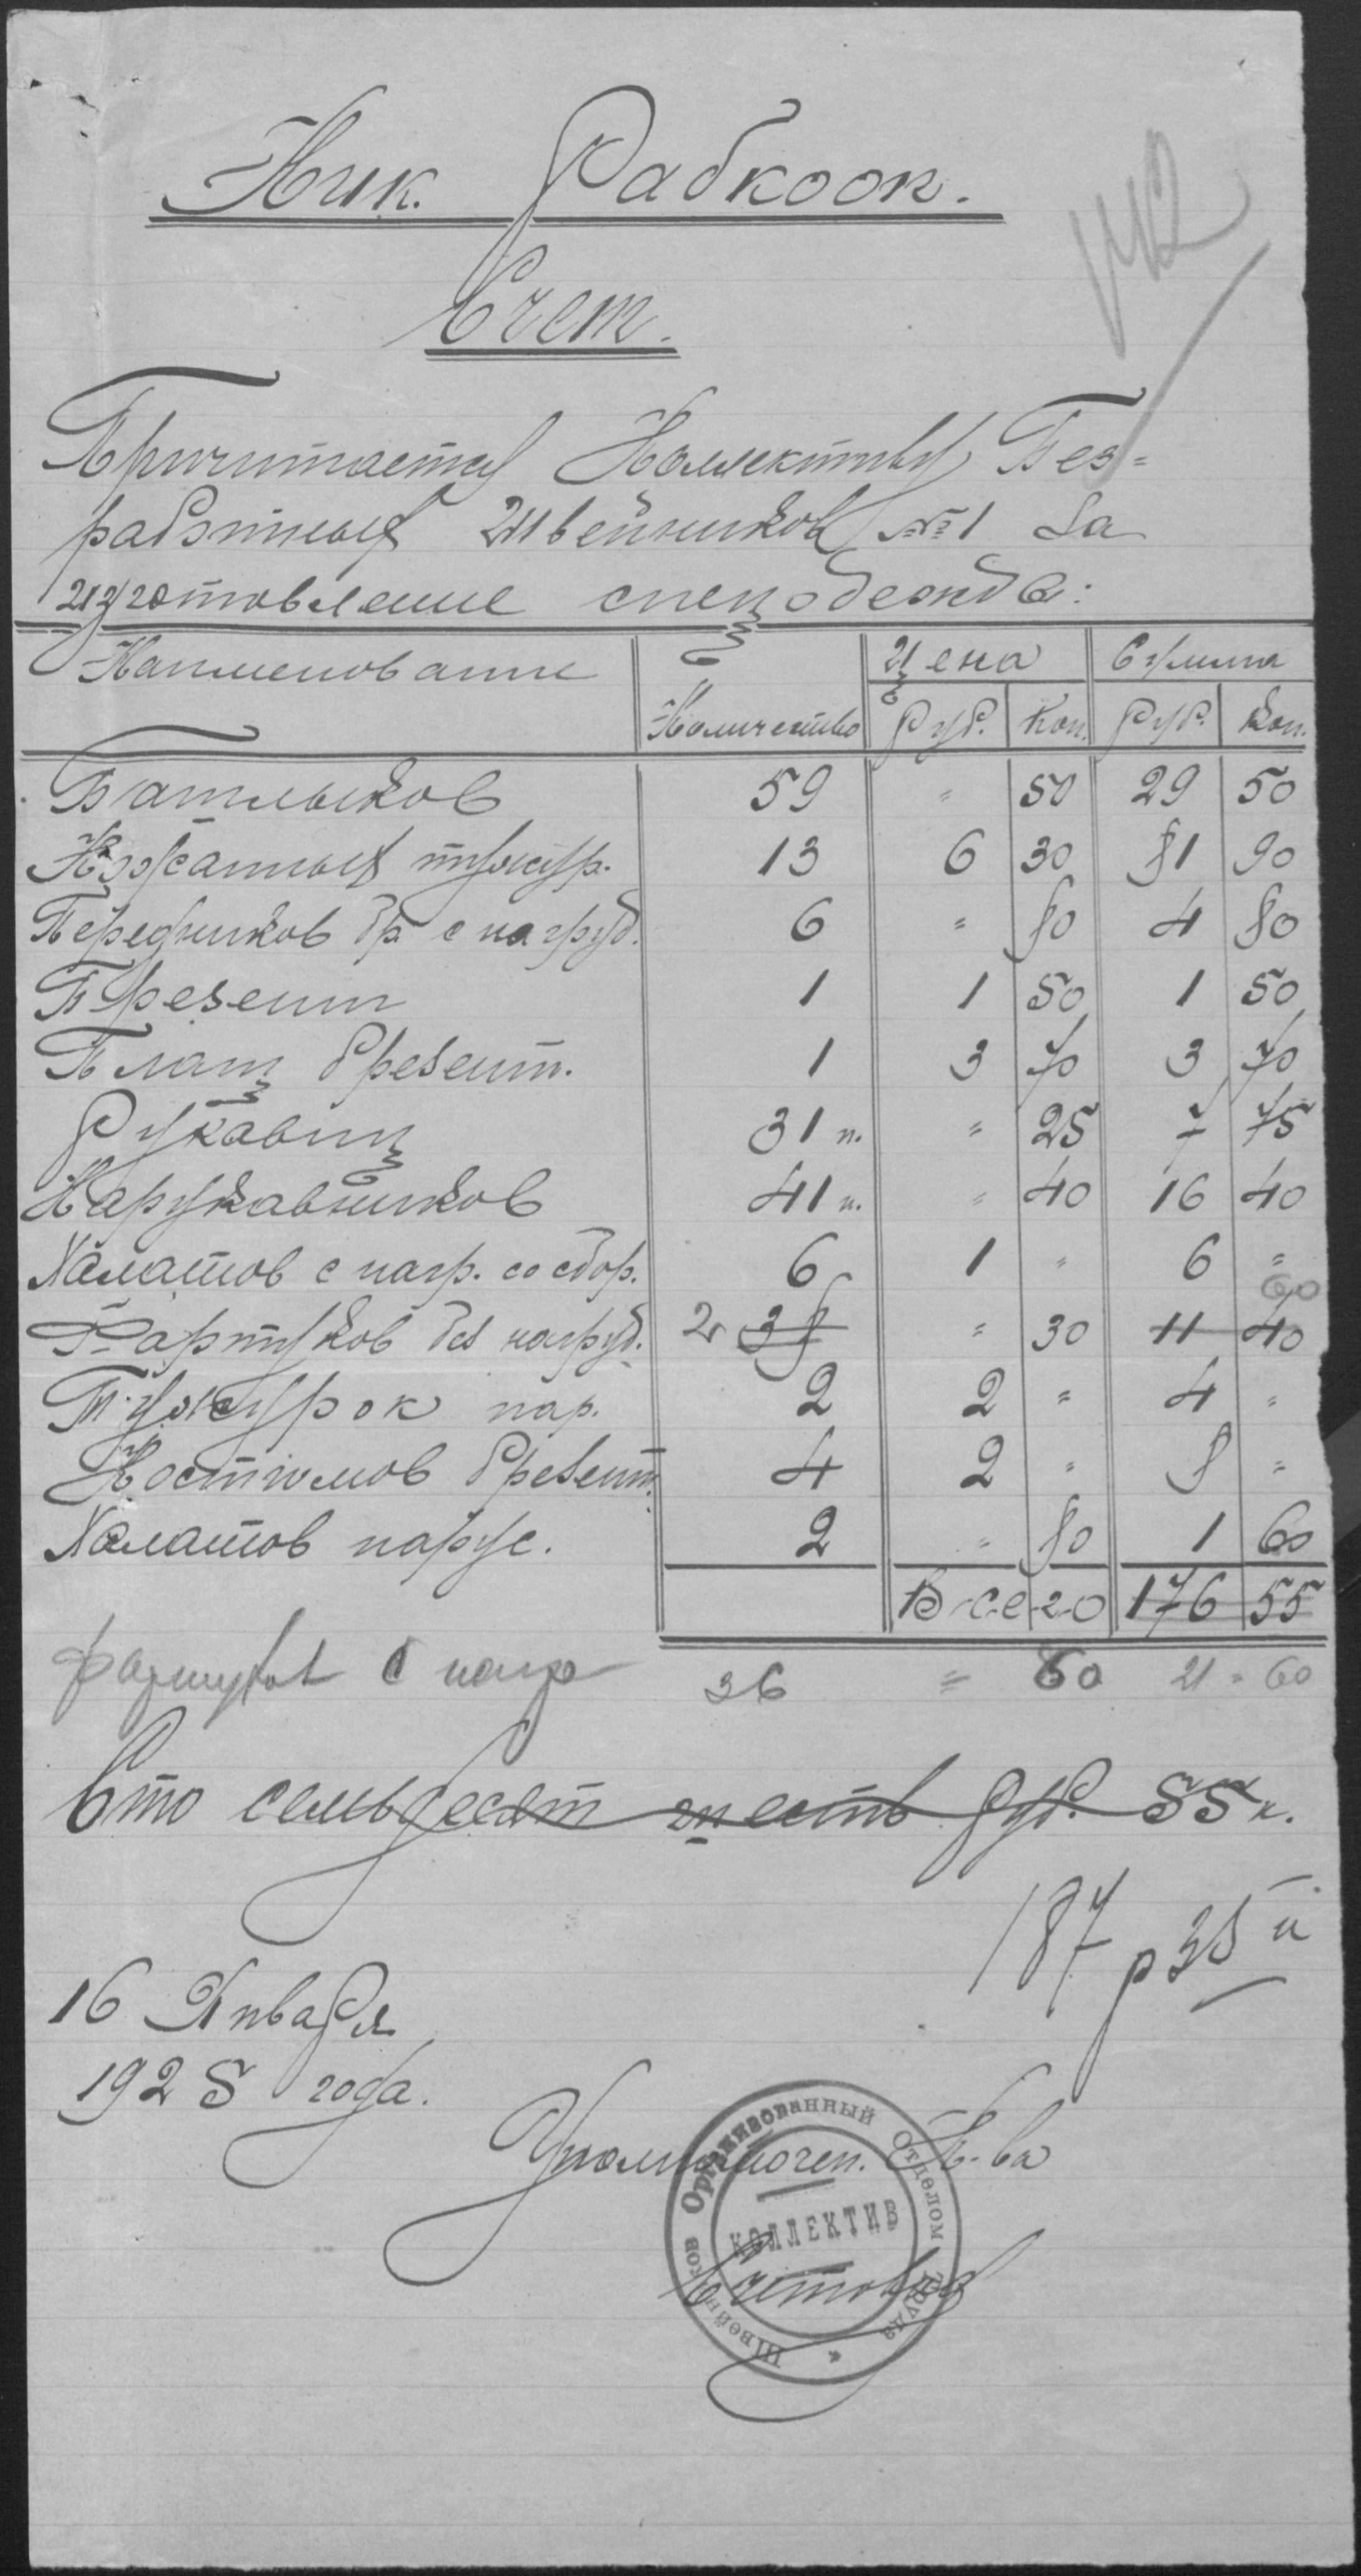 142
Ник. Рабкооп.
Счет.
Причитается Коллективу Без=
работных Швейников №1 за
изготовление спецодежды:
Наименование Количество Цена Сумма
Руб. Коп. Руб. Коп.
Башлыков 59 " 50 29 50
Кожанных тужур. 13 6 30 81 90
Передников бр с нагруд. 6 " 80 4 80
Брезент 1 1 50 1 50
Плащ брезент. 1 3 70 3 70
Рукавиц 31 п. " 25 7 75
Нарукавников 41 п. " 40 16 40
Халатов с нагр. со сбор. 6 1 " 6 "
60
Фартуков без нагруд. 2 38 " 30 11 40
Тужурок пар. 2 2 " 4 "
Костюмов брезент. 4 2 " 8 "
Халатов парус. 2 " 80 1 60
Всего 176 55
фартуков с нагр 36 = 60 21 = 60
Сто семьдесят шесть руб. 55 к.
187 р 35 к
16 Января
1925 года.
Уполномочен. К-ва
Швейников Организованный Отделом Труда
КОЛЛЕКТИВ